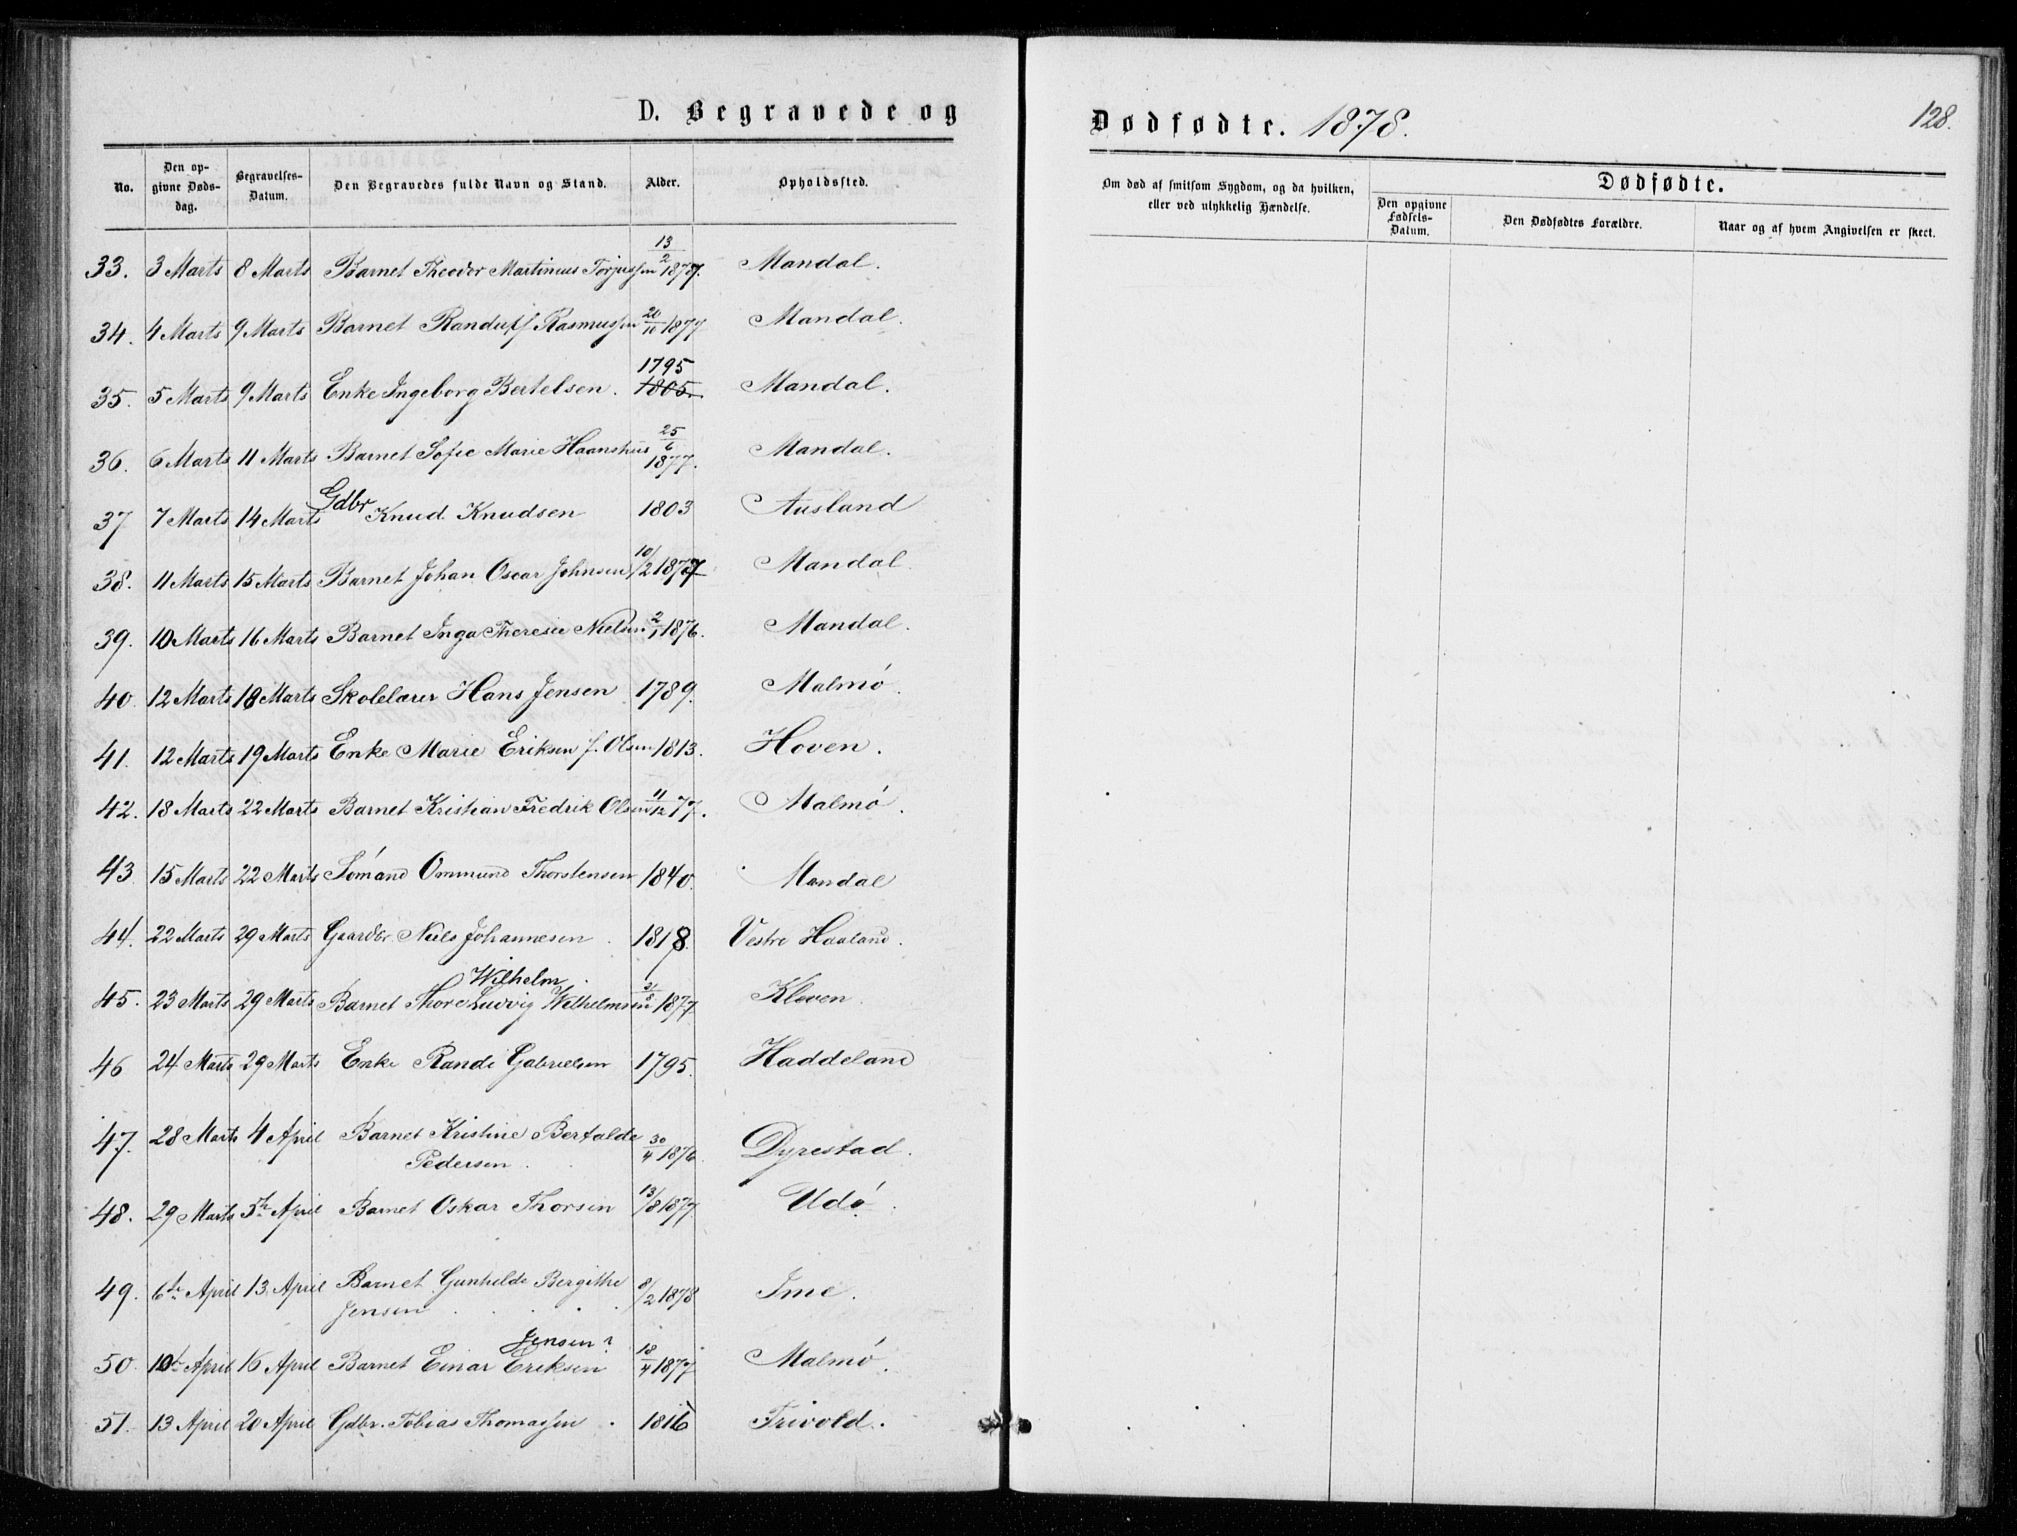 D. Begravede og
Dødfødte. 1878.
128.
No.
Den op-
givne Døds-
dag.
Begravelses-
Datum.
Den Begravedes fulde Navn og Stand.
Alder.
Opholdssted.
Om død af smitsom Sygdom, og da hvilken,
eller ved ulykkelig Hændelse.
Dødfødte.
Den opgivne
Fødsels-
Datum.
Den Dødfødtes Forældre.
Naar og af hvem Angivelsen er skeet.
33. 3 Marts 8 Marts Barnet Theodor Martinius Torjussen 13/2 1877. Mandal.
34. 4 Marts 9 Marts Barnet Randulf Rasmussen 20/10 1877 Mandal.
1795
35. 5 Marts 9 Marts Enke Ingeborg Bertelsen. 1805. Mandal.
36. 6 Marts 11 Marts Barnet Sofie Marie Haanshus 25/6 1877. Mandal.
37 7 Marts 14 Marts Gdbr Knud Knudsen 1803 Ausland
38. 11 Marts 15 Marts Barnet Johan Oscar Johnsen 10/2 1877 Mandal.
39. 10 Marts 16 Marts Barnet Inga Theresie Nielsen 2/1 1876. Mandal.
40. 12 Marts 18 Marts Skolelærer Hans Jensen 1789. Malmø.
41. 12 Marts 19 Marts Enke Marie Eriksen f. Olsen 1813. Hoven.
42. 18 Marts 22 Marts Barnet Kristian Fredrik Olsen 11/12 77. Malmø.
43 15 Marts 22 Marts Sømand Ommund Thorstensen 1840. Mandal
44. 22 Marts 29 Marts Gaardbr. Niels Johannesen. 1818. Vestre Haaland.
Wilhelm
45. 23 Marts 29 Marts Barnet Thore Ludvig Wilhelmsen 1877. Kleven.
46 24 Marts 29 Marts Enke Randi Gabrielsen 1795. Haddeland
47. 28 Marts 4 April Barnet Kristine Bertalde 30/4 1876. Dyrestad.
Pedersen.
48. 29 Marts 5te April Barnet Oskar Thorsen 13/8 1877 Udø.
49. 6te April 13. April Barnet Gunhilde Bergithe 8/2 1878 Ime.
Jensen
Jensen?
50. 10de April 16 April Barnet Einar Eriksen 18/4 1877 Malmø.
51. 13 April 20 April Gdbr. Tobias Thomassen. 1816 Frivold.